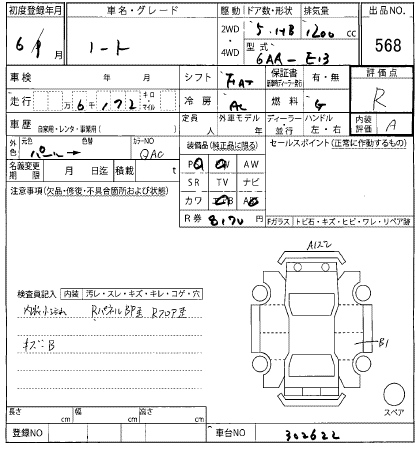 初度登録年月 車名・グレード 駆動 ドア数・形状 排気量 出品NO.
6/ 月 ノート 2WD 4WD 5.HB 1200 cc 568
型式
6AA-E13
車検 年 月 シフト FAT 保証書 有・無 評価点
走行 万 6千 172 キロ マイル 冷房 AC 燃料 G R
車歴 自家用・レンタ・事業用( ) 定員 人 外車モデル 年 ディーラー・並行 ハンドル 左・右 内装評価 A
外色 元色 パール 色替 カラーNO QAC 装備品(純正品に限る) セールスポイント(正常に作動するもの)
名義変更期限 月 日迄 積載 t PS PW AW
注意事項(欠品・修復・不具合箇所および状態) SR TV ナビ
カワ エアB AB
R券 8170円 Fガラス トビ石・キズ・ヒビ・ワレ・リペア跡
A122
検査員記入 内装 汚レ・スレ・キズ・キレ・コゲ・穴
RパネルBP歪 Rフロア歪
キズ:B
B1
スペア
長さ cm 幅 cm 高さ cm
登録NO 車台NO 302622